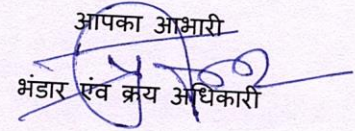 आपका आभारी
भंडार एंव क्रय अधिकारी